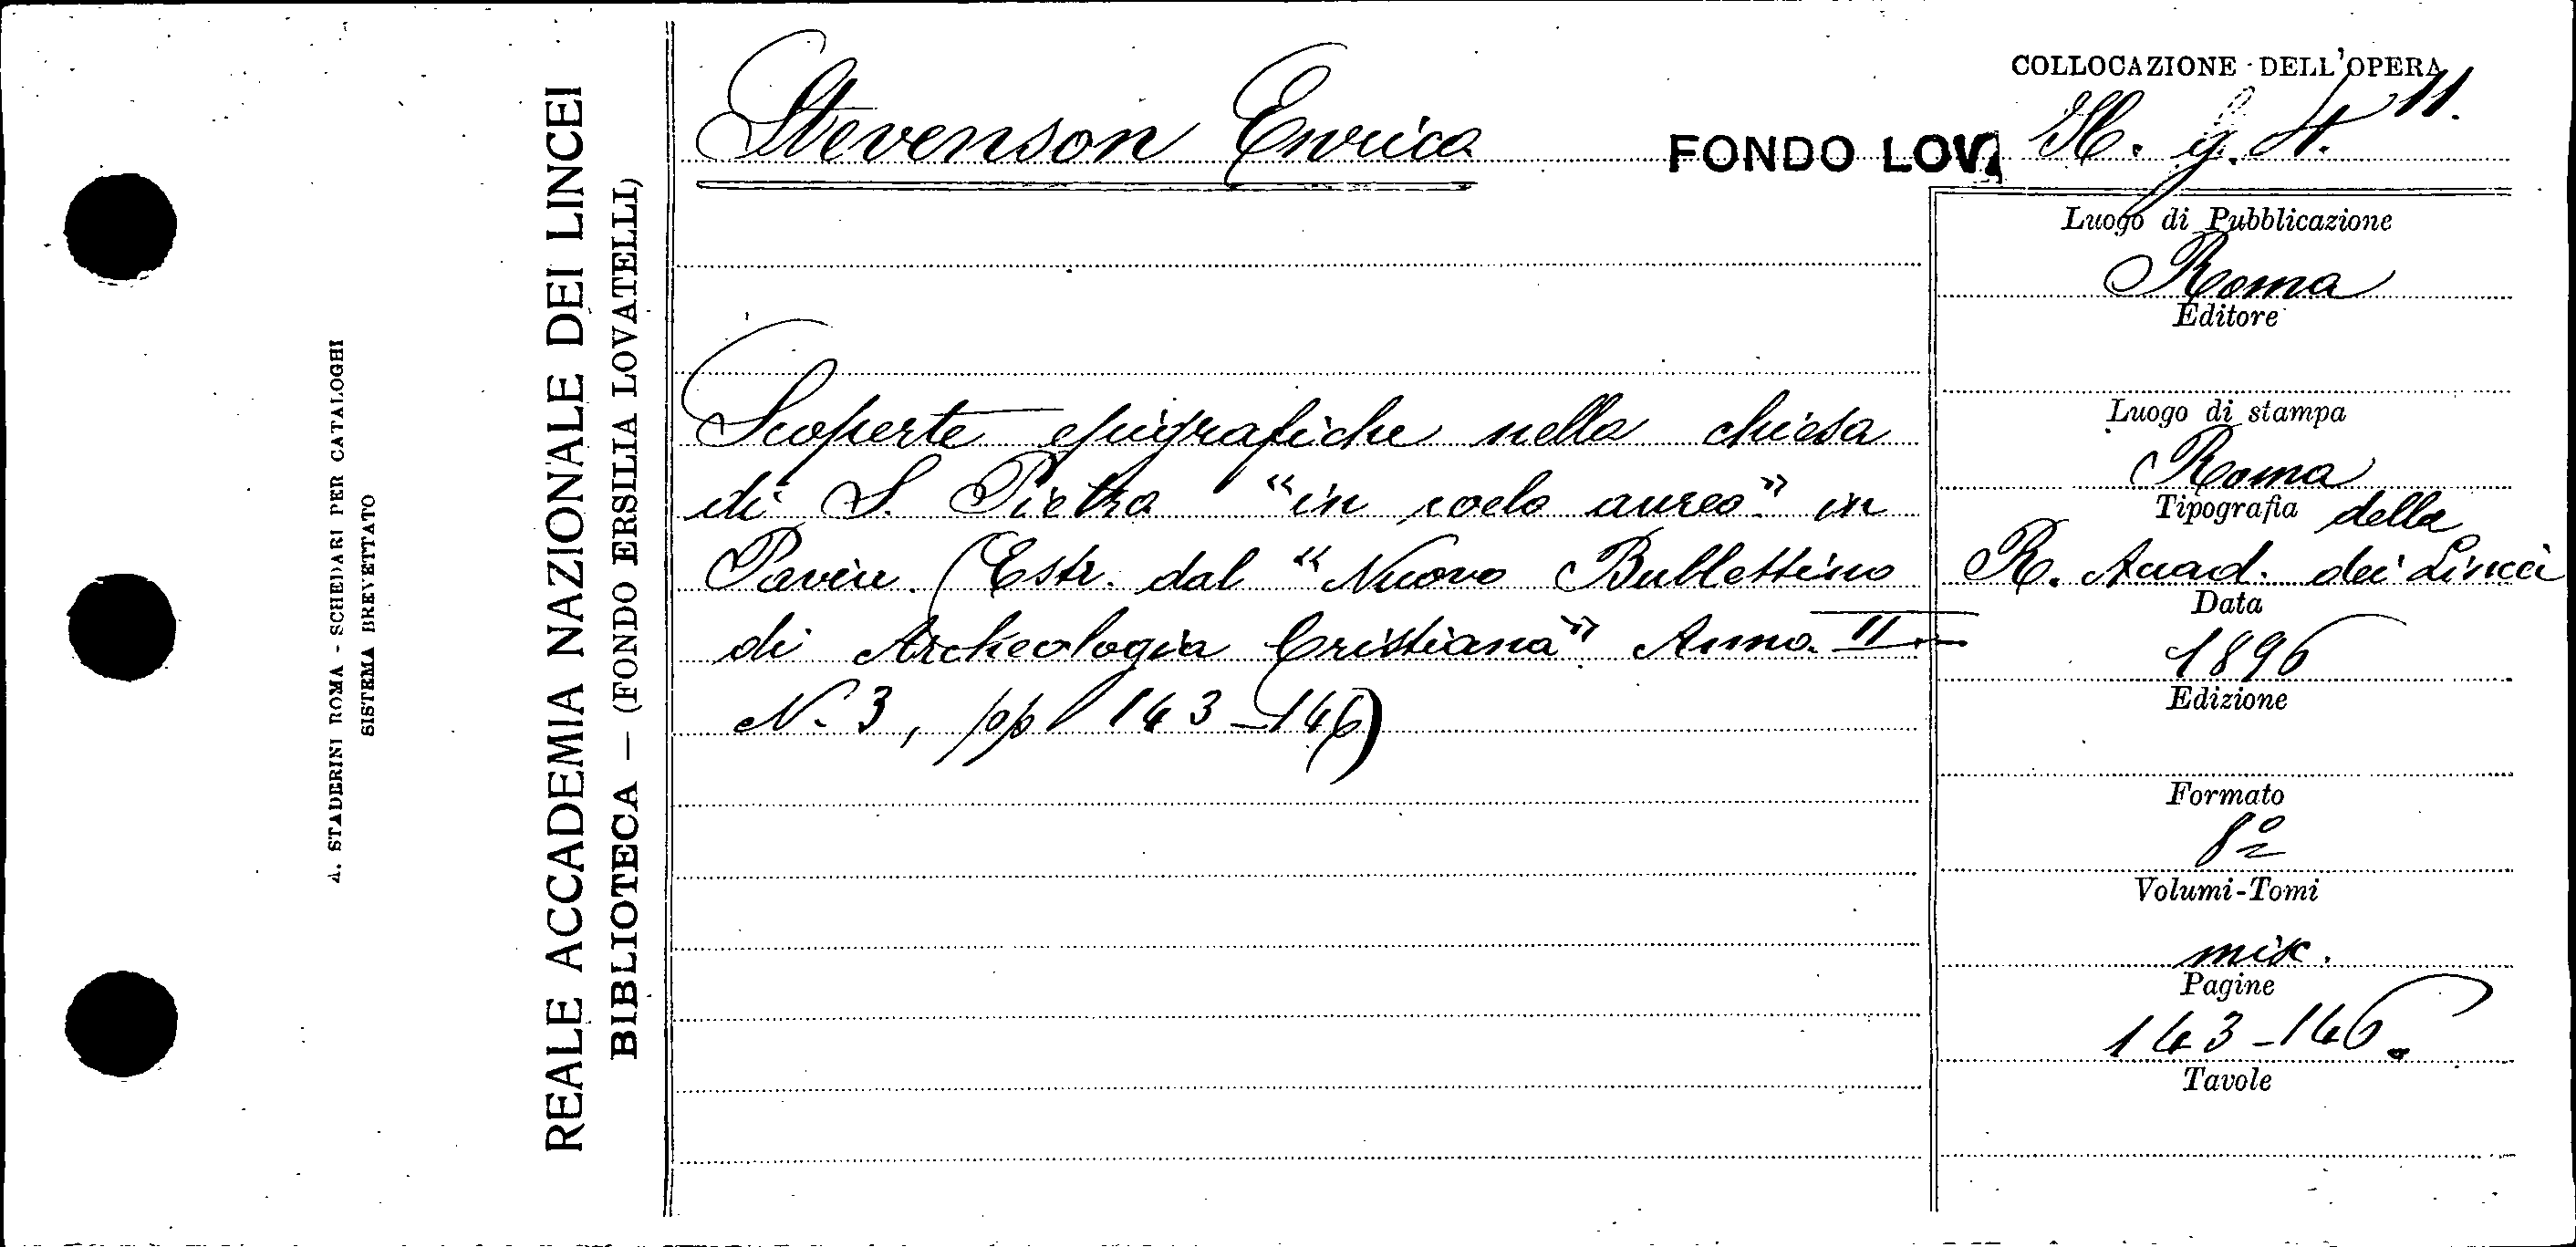 A. STADERINI ROMA - SCHEDARI PER CATALOGHI
SISTEMA BREVETTATO
REALE ACCADEMIA NAZIONALE DEI LINCEI
BIBLIOTECA — (FONDO ERSILIA LOVATELLI)
Stevenson Enrico
FONDO LOV
COLLOCAZIONE DELL'OPERA
g. 11.
Scoperte epigrafiche nella chiesa
di S. Pietro "in coelo aureo" in
Pavia. (Estr. dal "Nuovo Bullettino
di Archeologia Cristiana" Anno II
N. 3, pp 143-146)
Luogo di Pubblicazione
Roma
Editore
Luogo di stampa
Roma
Tipografia della
R. Accad. dei Lincei
Data
1896
Edizione
Formato
8º
Volumi-Tomi
misc.
Pagine
143-146.
Tavole